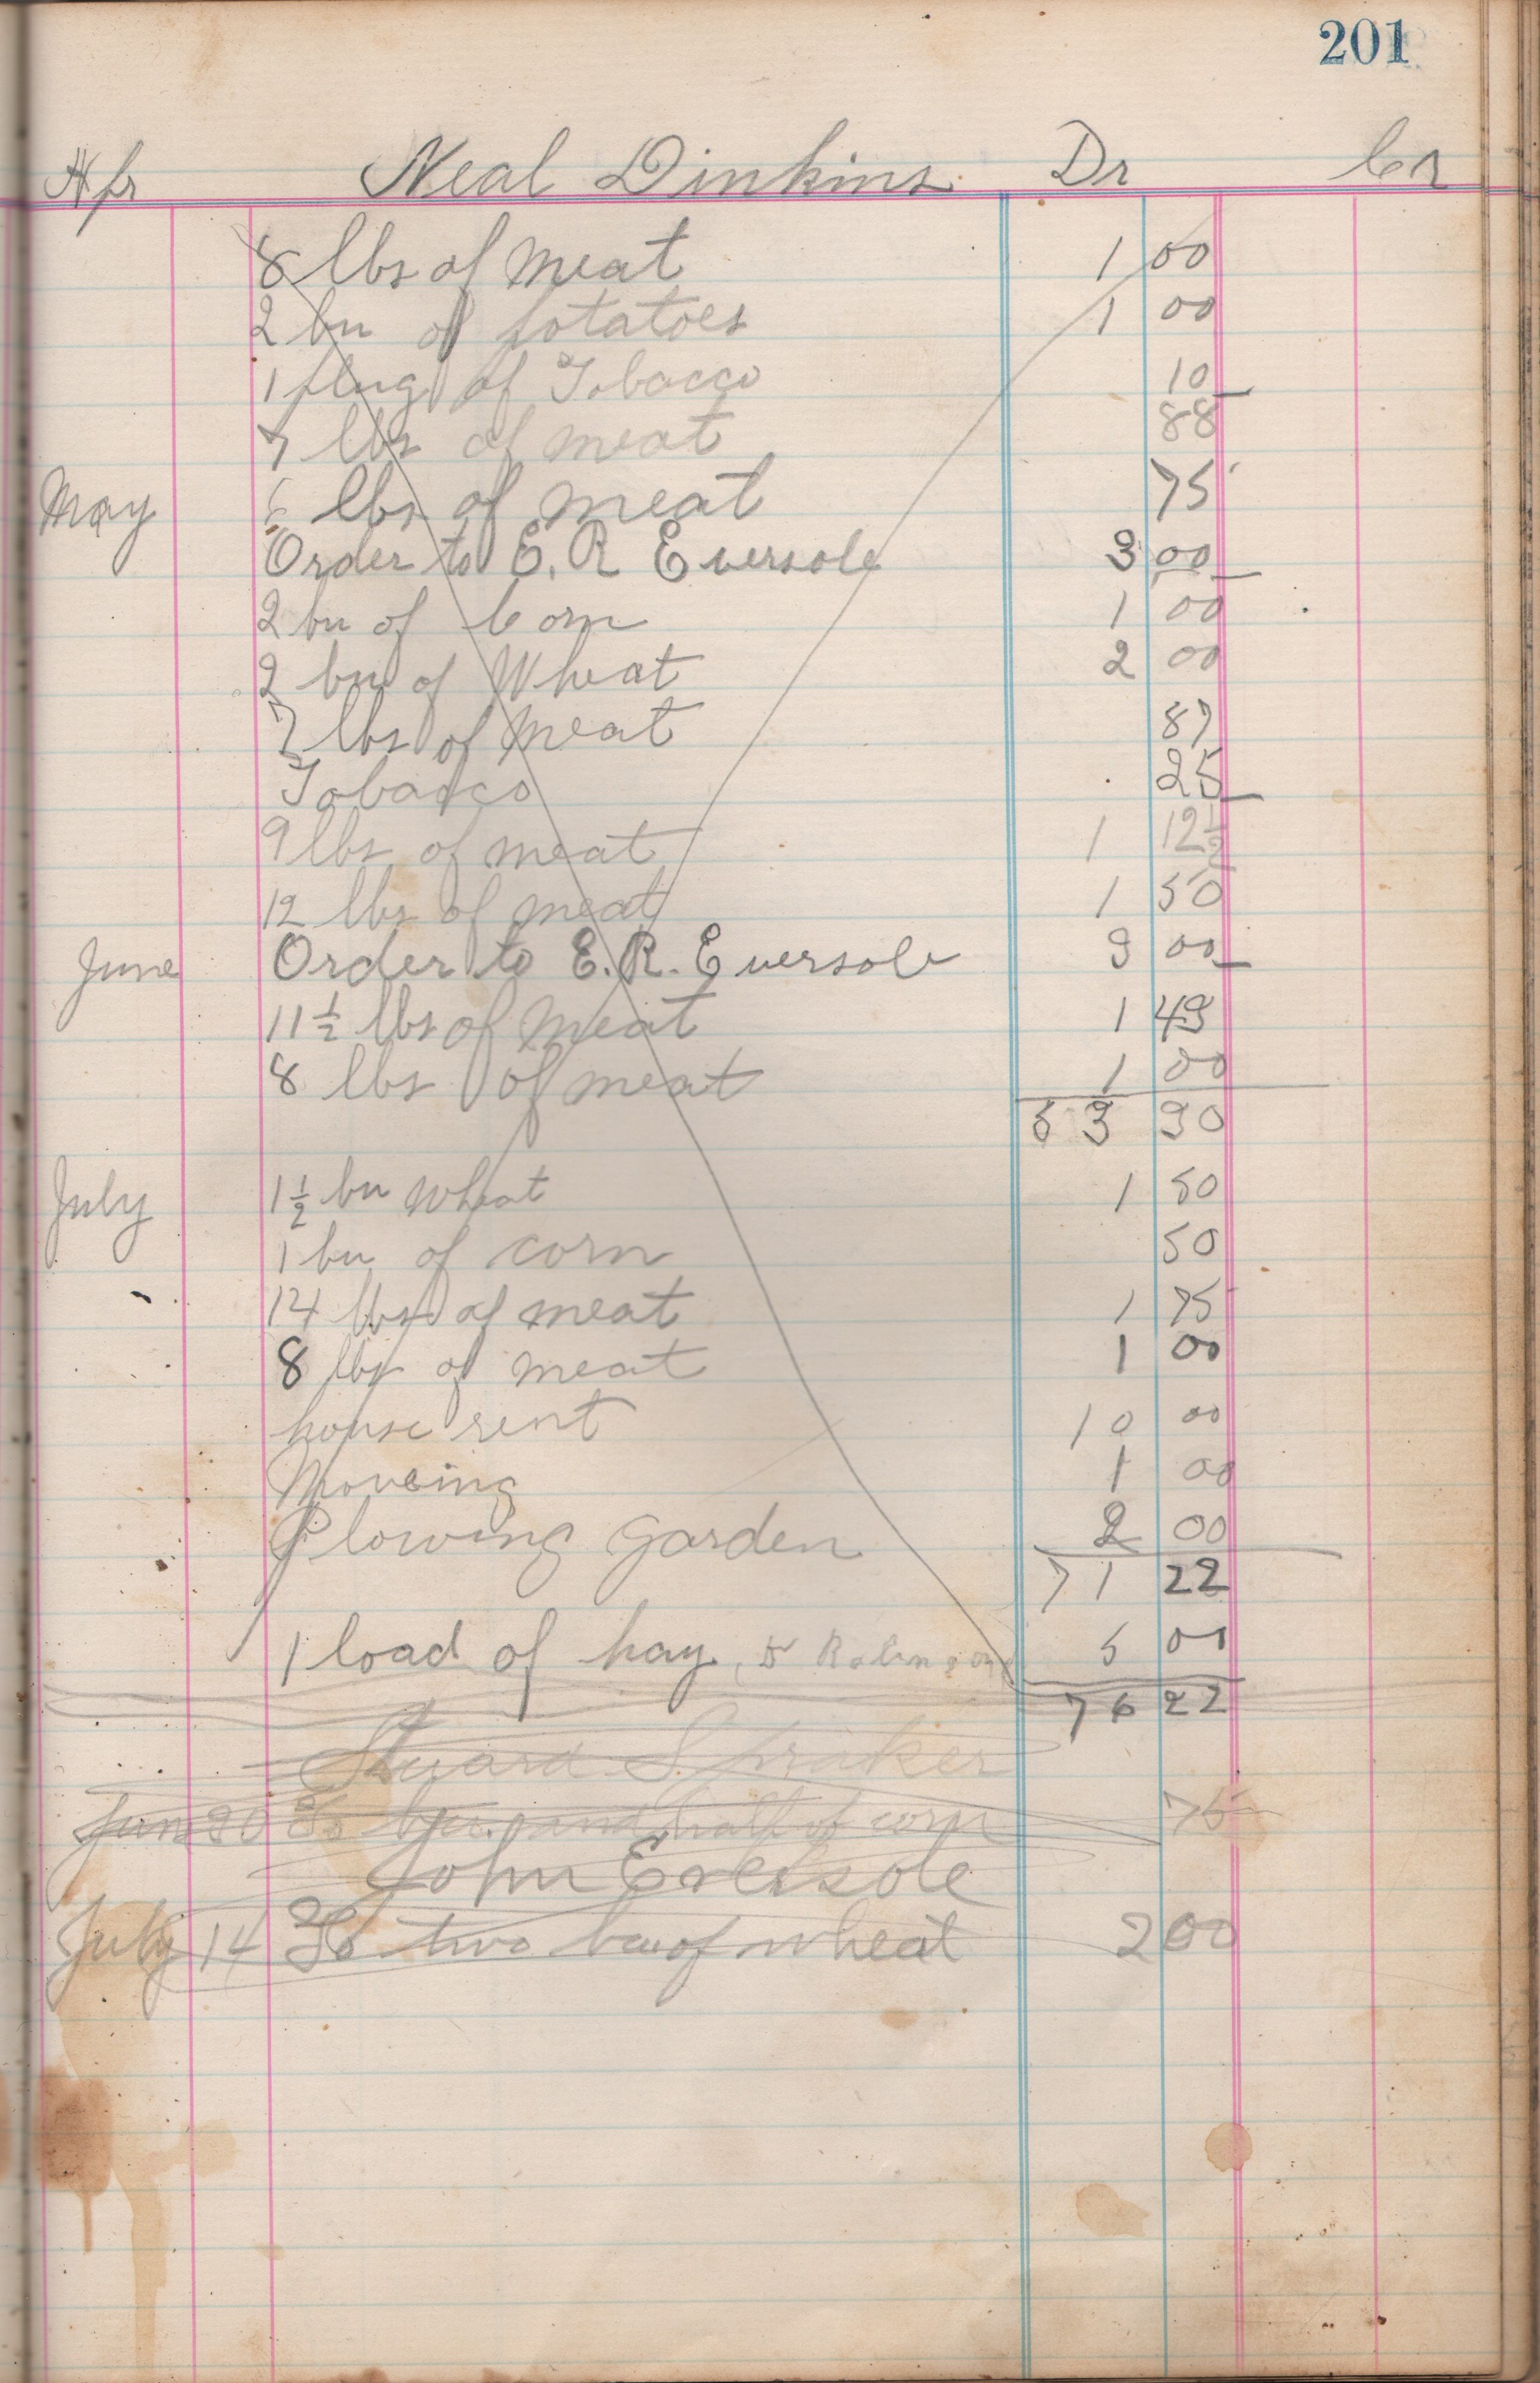 201
Apr Neal Dinkins Dr Cr
8 lbs of meat 1 00
2 bu of potatoes 1 00
1 plug of Tobacco 10
7 lbs of meat 88
May 6 lbs of meat 75
Order to E. R Eversole 3 00
2 bu of Corn 1 00
2 bu of Wheat 2 00
7 lbs of meat 87
Tobacco 25
9 lbs of meat 1 12½
12 lbs of meat 1 50
June Order to E. R. Eversole 3 00
11½ lbs of meat 1 43
8 lbs of meat 1 00
53 30
July 1½ bu Wheat 1 50
1 bu of corn 50
14 lbs of meat 1 75
8 lbs of meat 1 00
house rent 10 00
Moveing 1 00
Plowing garden 2 00
71 22
1 load of hay, 5 00
76 22
Spraker
June 20 To bu. and half of corn 75
John Eversole
July 14 To two bu of wheat 2 00